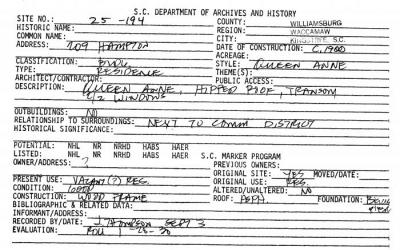 S.C. DEPARTMENT OF ARCHIVES AND HISTORY
SITE NO.: 25-194 COUNTY: WILLIAMSBURG
HISTORIC NAME: REGION: WACCAMAW
COMMON NAME: CITY: KINGSTREE, S.C.
ADDRESS: 709 HAMPTON DATE OF CONSTRUCTION: C.1900
ACREAGE:
CLASSIFICATION: BLDG STYLE: QUEEN ANNE
TYPE: RESIDENCE THEME(S):
ARCHITECT/CONTRACTOR: PUBLIC ACCESS:
DESCRIPTION: QUEEN ANNE, HIPPED ROOF, TRANSOM
2/2 WINDOWS
OUTBUILDINGS: NO
RELATIONSHIP TO SURROUNDINGS: NEXT TO COMM DISTRICT
HISTORICAL SIGNIFICANCE:
POTENTIAL: NHL NR NRHD HABS HAER
LISTED: NHL NR NRHD HABS HAER S.C. MARKER PROGRAM
OWNER/ADDRESS: ? PREVIOUS OWNERS:
ORIGINAL SITE: YES MOVED/DATE:
PRESENT USE: VACANT(?) RES. ORIGINAL USE: RES.
CONDITION: GOOD ALTERED/UNALTERED: NO
CONSTRUCTION: WOOD FRAME ROOF: ASPH. FOUNDATION: BRICK
BIBLIOGRAPHIC & RELATED DATA:
INFORMANT/ADDRESS:
RECORDED BY/DATE: J. THOMPSON SEPT 3
EVALUATION: ROLL 28-30